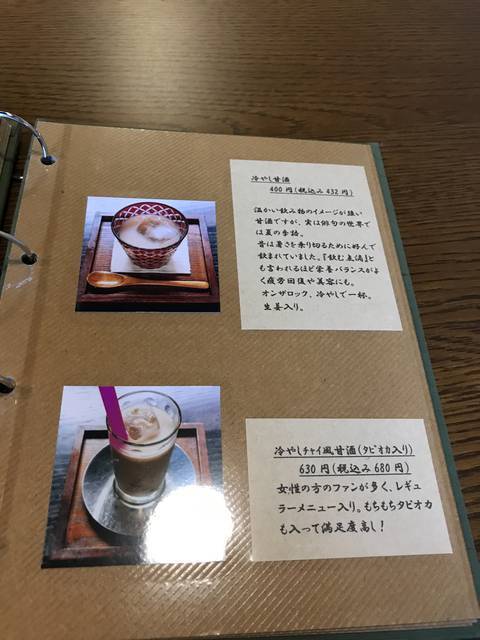 冷やし甘酒
400円(税込み432円)
温かい飲み物のイメージが強い
甘酒ですが、実は俳句の世界で
は夏の季語。
昔は暑さを乗り切るために好んで
飲まれていました。『飲む点滴』と
も言われるほど栄養バランスがよ
く疲労回復や美容にも。
オンザロック、冷やしで一杯。
生姜入り。
冷やしチャイ風甘酒(タピオカ入り)
630円(税込み680円)
女性の方のファンが多く、レギュ
ラーメニュー入り。もちもちタピオカ
も入って満足度高し!